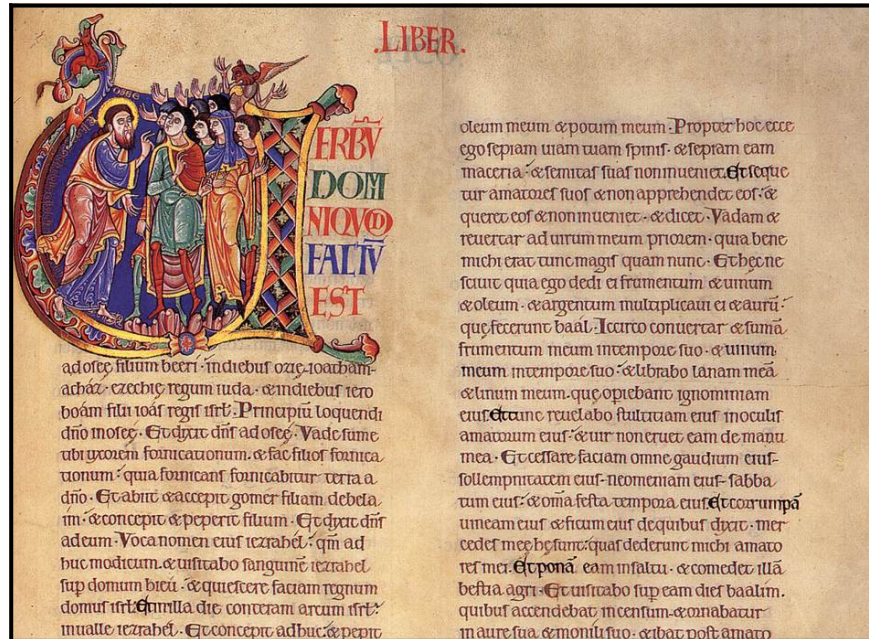 .LIBER.
OSEE
VERBṼ
DOM
NI QVOD
FACTṼ
EST
ad osee filium beeri· in diebus ozię· ioatham·
achaz· ezechię regum iuda· & in diebus iero
boam filii ioas regis isrl̃· Principiũ loquendi
dño in osee· Et dixit dñs ad osee· Vade sume
tibi uxorem fornicationum· & fac filios fornica
tionum· quia fornicans fornicabitur terra a
dño· Et abiit & accepit gomer filiam debela
im· & concepit & peperit filium· Et dixit dñs
ad eum· Voca nomen eius iezrahel· qm̃ ad
huc modicum· & uisitabo sanguinẽ iezrahel
sup domum hieu· & quiescere faciam regnum
domus isrl̃· Et in illa die conteram arcum isrl̃
in ualle iezrahel· Et concepit adhuc & pepit
oleum meum & potum meum· Propter hoc ecce
ego sepiam uiam tuam spinis· & sepiam eam
maceria· & semitas suas non inueniet· Et seque
tur amatores suos & non apprehendet eos· &
queret eos & non inueniet· & dicet· Vadam &
reuertar ad uirum meum priorem· quia bene
michi erat tunc magis quam nunc· Et hęc ne
sciuit quia ego dedi ei frumentum & uinum
& oleum· & argentum multiplicaui ei & aurũ·
quę fecerunt baal· Iccirco conuertar & sumã
frumentum meum in tempore suo· & uinum
meum in tempore suo· & librabo lanam meã
& linum meum· quę opiebant ignominiam
eius· Et tunc reuelabo stultitiam eius in oculis
amatorum eius· & uir non eruet eam de manu
mea· Et cessare faciam omne gaudium eius·
sollempnitatem eius· neomeniam eius· sabba
tum eius· & om̃a festa tempora eius· Et corrumpã
uineam eius & ficum eius de quibus dixit· mer
cedes meę hę sunt· quas dederunt michi amato
res mei· Et ponã eam in saltu· & comedet illã
bestia agri· Et uisitabo sup eam dies baalim·
quibus accendebat incensum· & ornabatur
in aure sua & monili suo· & ibat post amato